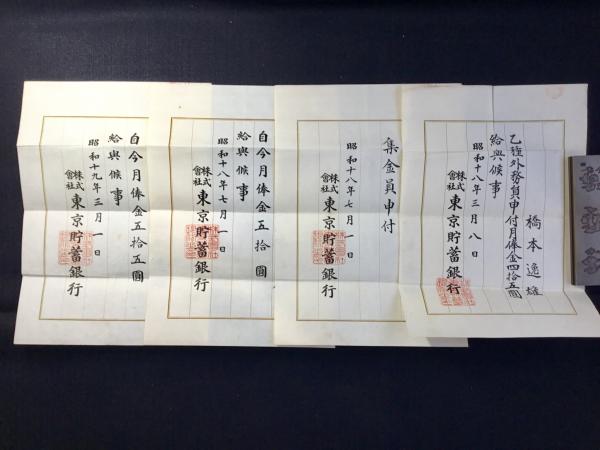 橋本逸雄
乙種外務員申付月俸金四拾五圓
給與候事
昭和十八年三月八日
株式會社東京貯蓄銀行
集金員申付
昭和十八年七月一日
株式會社東京貯蓄銀行
自今月俸金五拾圓
給與候事
昭和十八年七月一日
株式會社東京貯蓄銀行
自今月俸金五拾五圓
給與候事
昭和十九年三月一日
株式會社東京貯蓄銀行